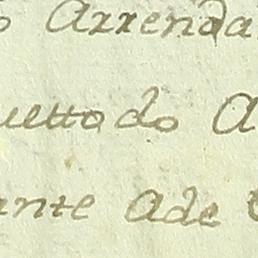 Arrenda
uetto do A
ante Ade